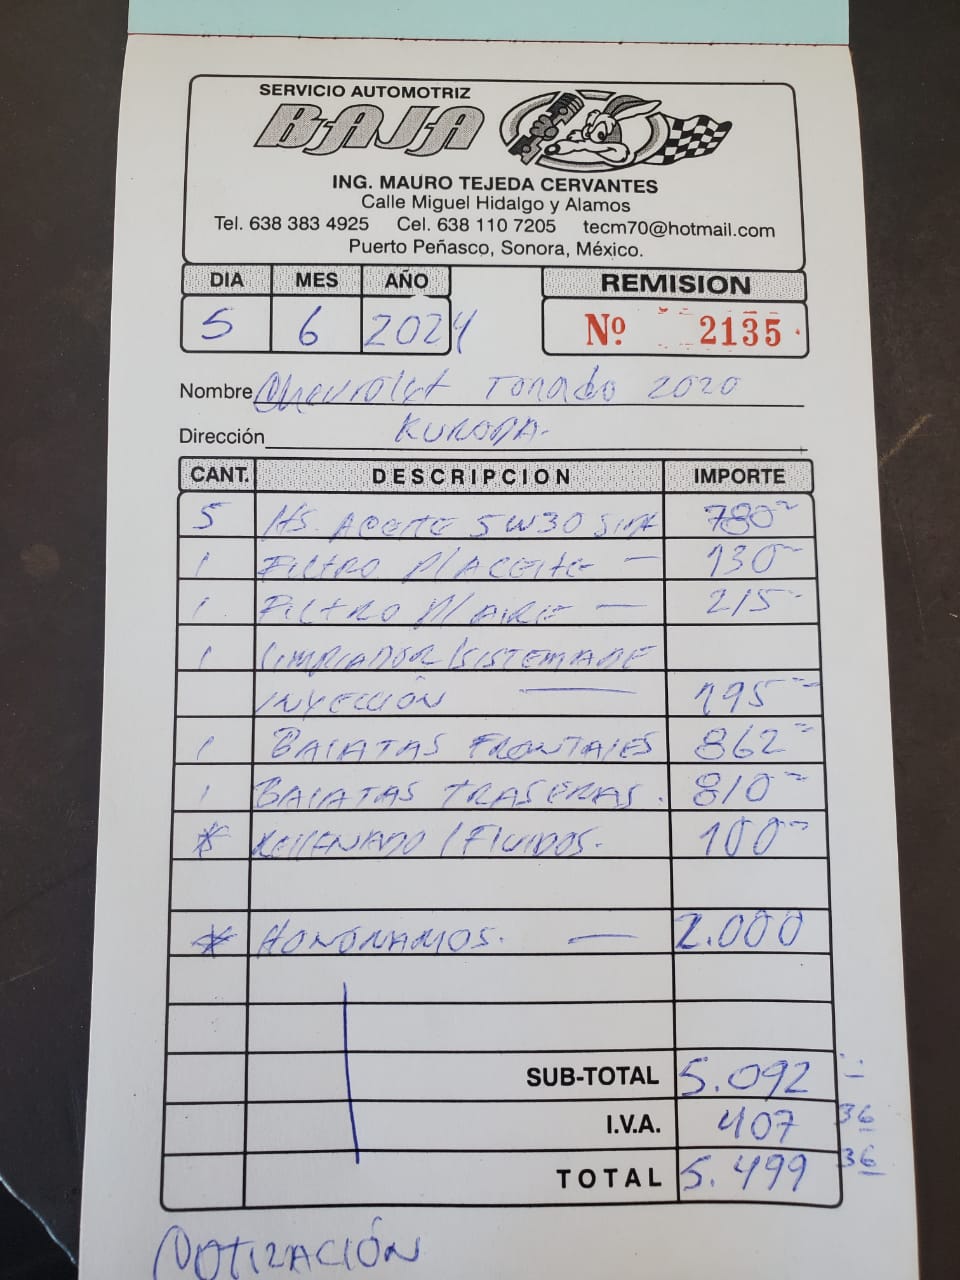 SERVICIO AUTOMOTRIZ
BAJA
ING. MAURO TEJEDA CERVANTES
Calle Miguel Hidalgo y Alamos
Tel. 638 383 4925 Cel. 638 110 7205 tecm70@hotmail.com
Puerto Peñasco, Sonora, México.
DIA MES AÑO REMISION
5 6 2024 Nº 2135
Nombre Chevrolet Tonado 2020
Dirección KURODA.
CANT. DESCRIPCION IMPORTE
5 lts. ACEITE 5W30 Sint 780
1 FILTRO P/ACEITE — 130
1 FILTRO P/AIRE — 215
1 LIMPIADOR/SISTEMA DE
INYECCIÓN — 195
1 BALATAS FRONTALES 862
1 BALATAS TRASERAS. 810
* RELLENADO/FLUIDOS. 100
* HONORARIOS. — 2.000
SUB-TOTAL 5.092
I.V.A. 407 36
TOTAL 5.499 36
COTIZACIÓN